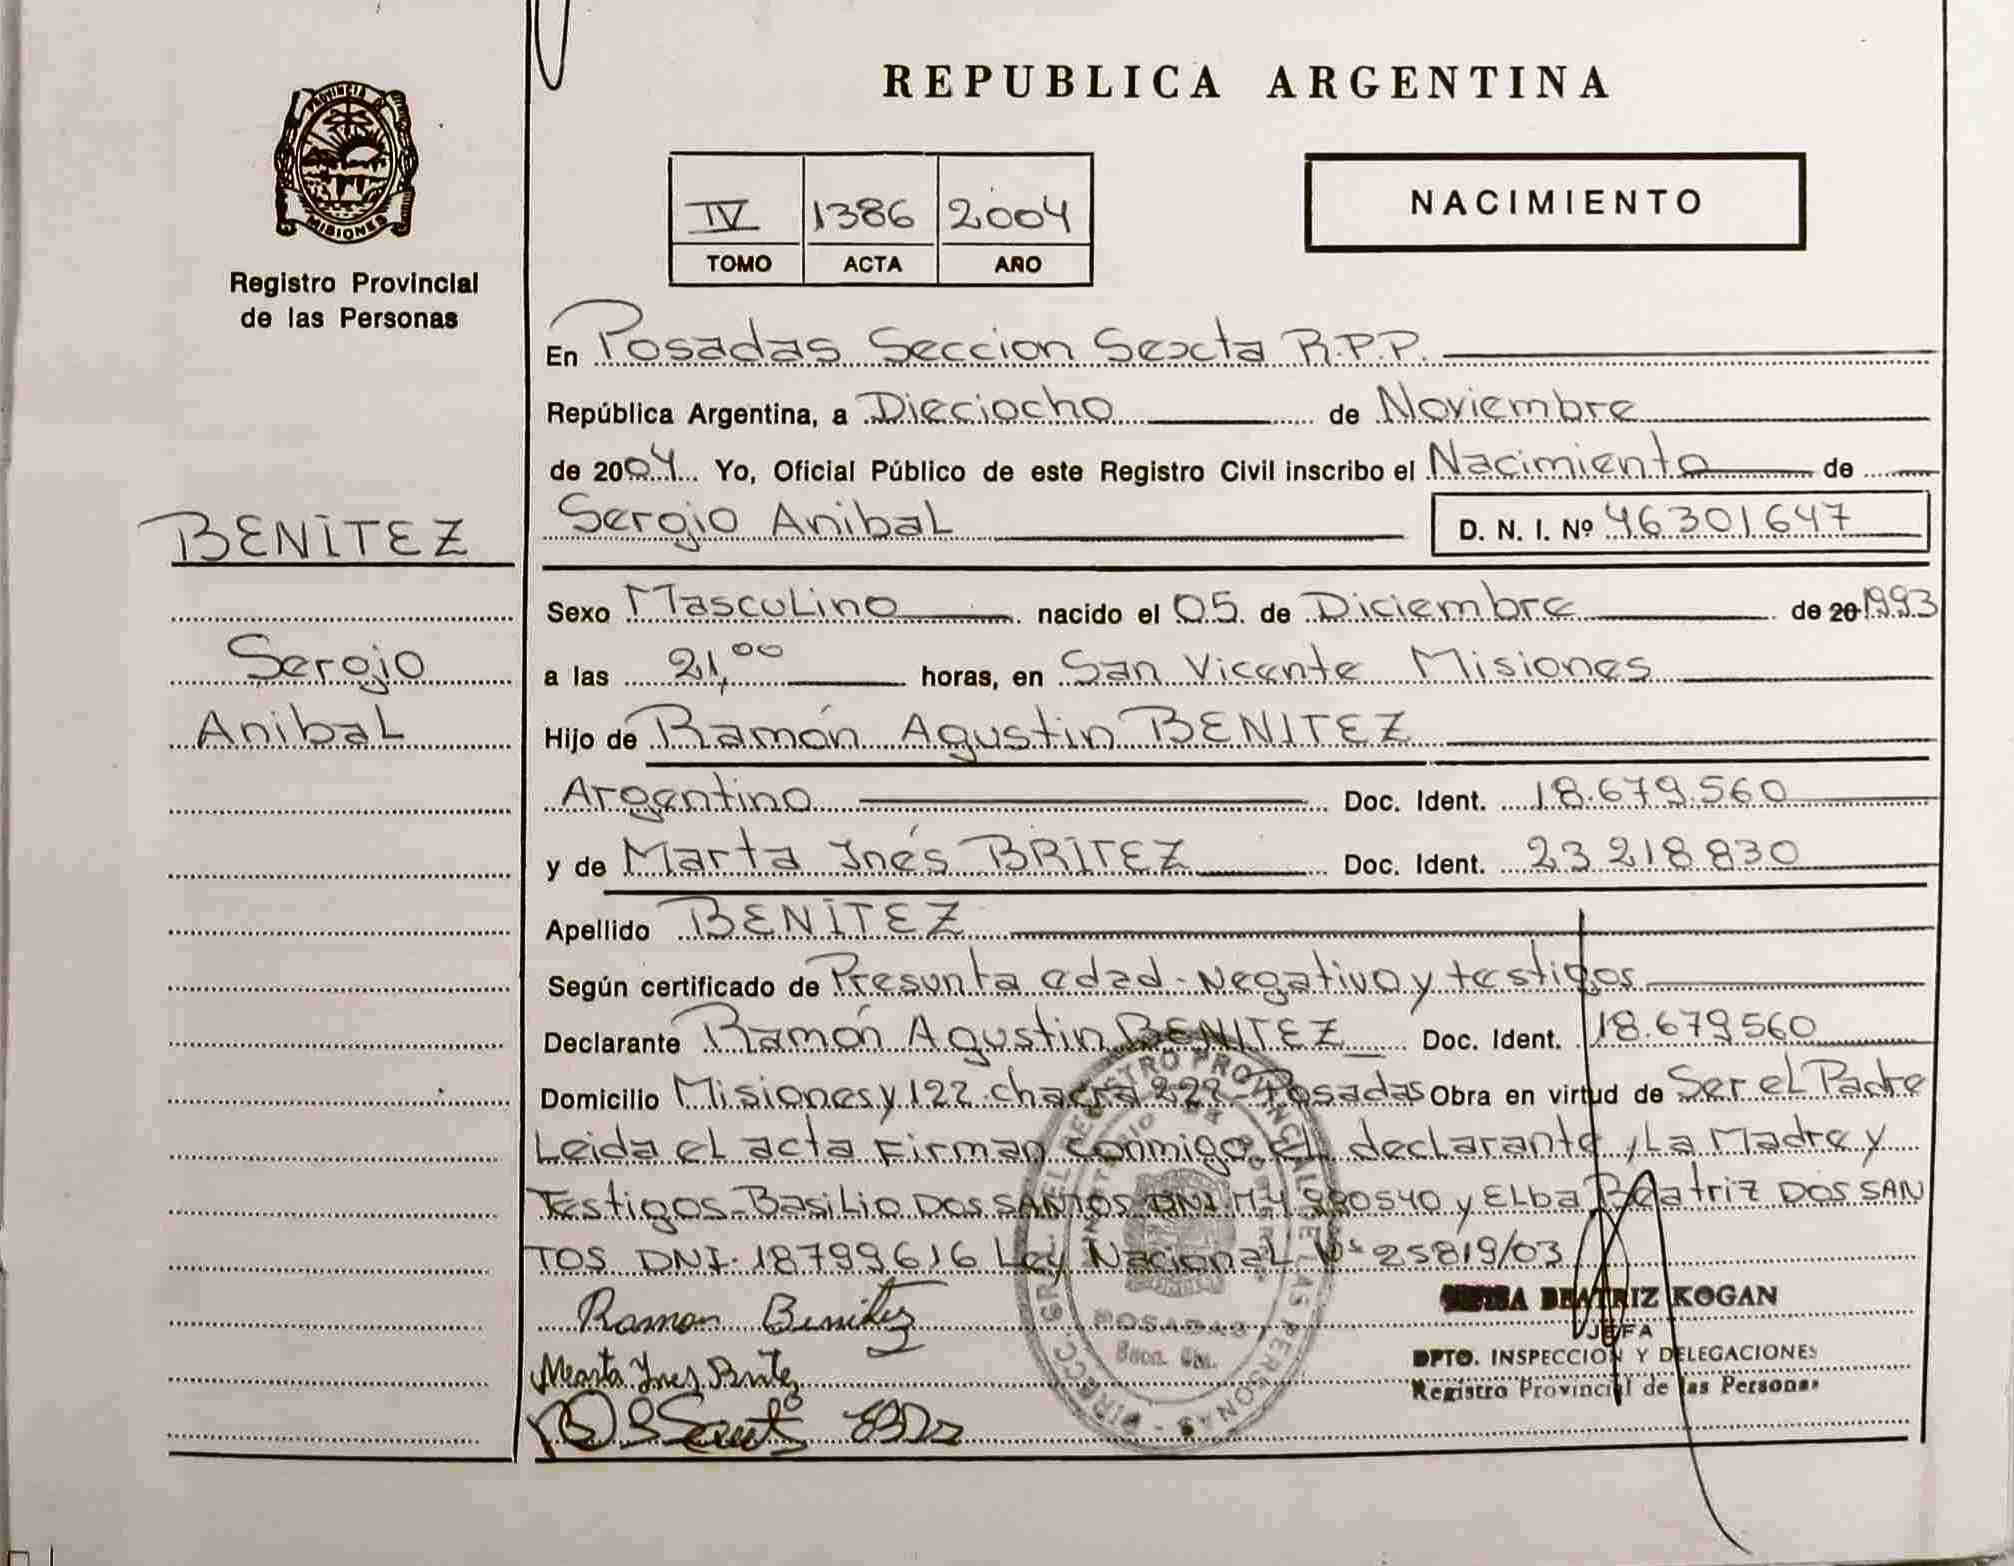 REPUBLICA ARGENTINA
PROVINCIA DE
MISIONES
Registro Provincial
de las Personas
IV 1386 2004
TOMO ACTA AÑO
NACIMIENTO
En Posadas Seccion Sexta R.P.P.
República Argentina, a Dieciocho de Noviembre
de 2004 Yo, Oficial Público de este Registro Civil inscribo el Nacimiento de
Sergio Anibal D. N. I. Nº 46301647
BENITEZ
Sergio
Anibal
Sexo Masculino nacido el 05 de Diciembre de 20 1993
a las 21,00 horas, en San Vicente Misiones
Hijo de Ramón Agustin BENITEZ
Argentino Doc. Ident. 18.679.560
y de Marta Inés BRITEZ Doc. Ident. 23 218 830
Apellido BENITEZ
Según certificado de Presunta edad - Negativo y testigos
Declarante Ramón Agustin BENITEZ Doc. Ident. 18.679560
Domicilio Misiones y 122 chacra 222 - Posadas Obra en virtud de Ser el Padre
Leida el acta Firman conmigo el declarante, La Madre y
Testigos - Basilio DOS SANTOS DNI M4 980540 y Elba Beatriz DOS SAN
TOS DNI. 18799616 Ley Nacional Nº 25819/03
Ramon Benitez
Marta Ines Britez
BEATRIZ KOGAN
JEFA
DPTO. INSPECCION Y DELEGACIONES
Registro Provincial de las Personas
DIRECC. GRL. DEL REGISTRO PROVINCIAL DE LAS PERSONAS
POSADAS